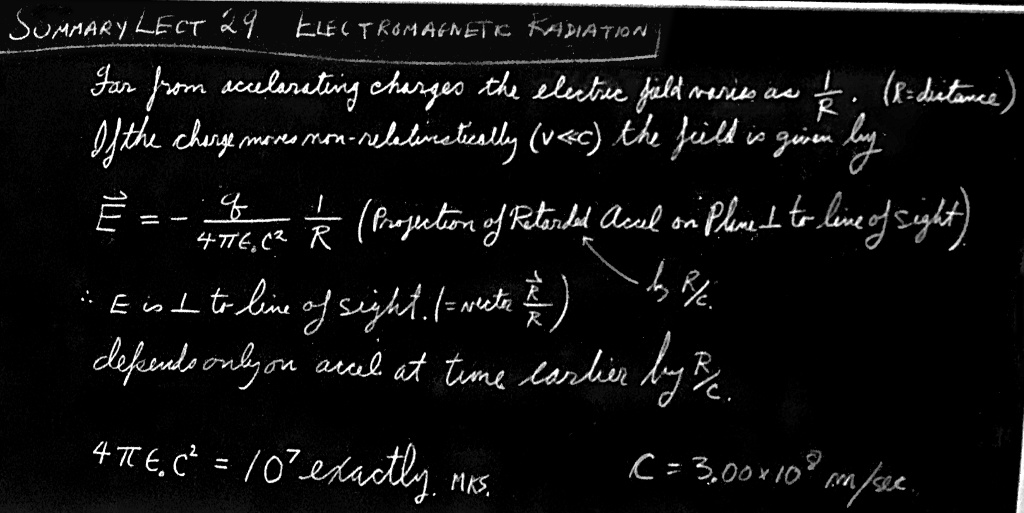 SUMMARY LECT 29. ELECTROMAGNETIC RADIATION
Far from accelerating charges the electric field varies as 1/R. (R=distance)
If the charge moves non-relativistically (v≪c) the field is given by
E⃗ = - q/4πϵ₀c² 1/R (Projection of Retarded Accel on Plane ⊥ to line of sight)
by R/c.
∴ E is ⊥ to line of sight. (= vector R⃗/R)
depends only on accel at time earlier by R/c.
4πϵ₀c² = 10⁷ exactly. MKS. C = 3.00×10⁸ m/sec.